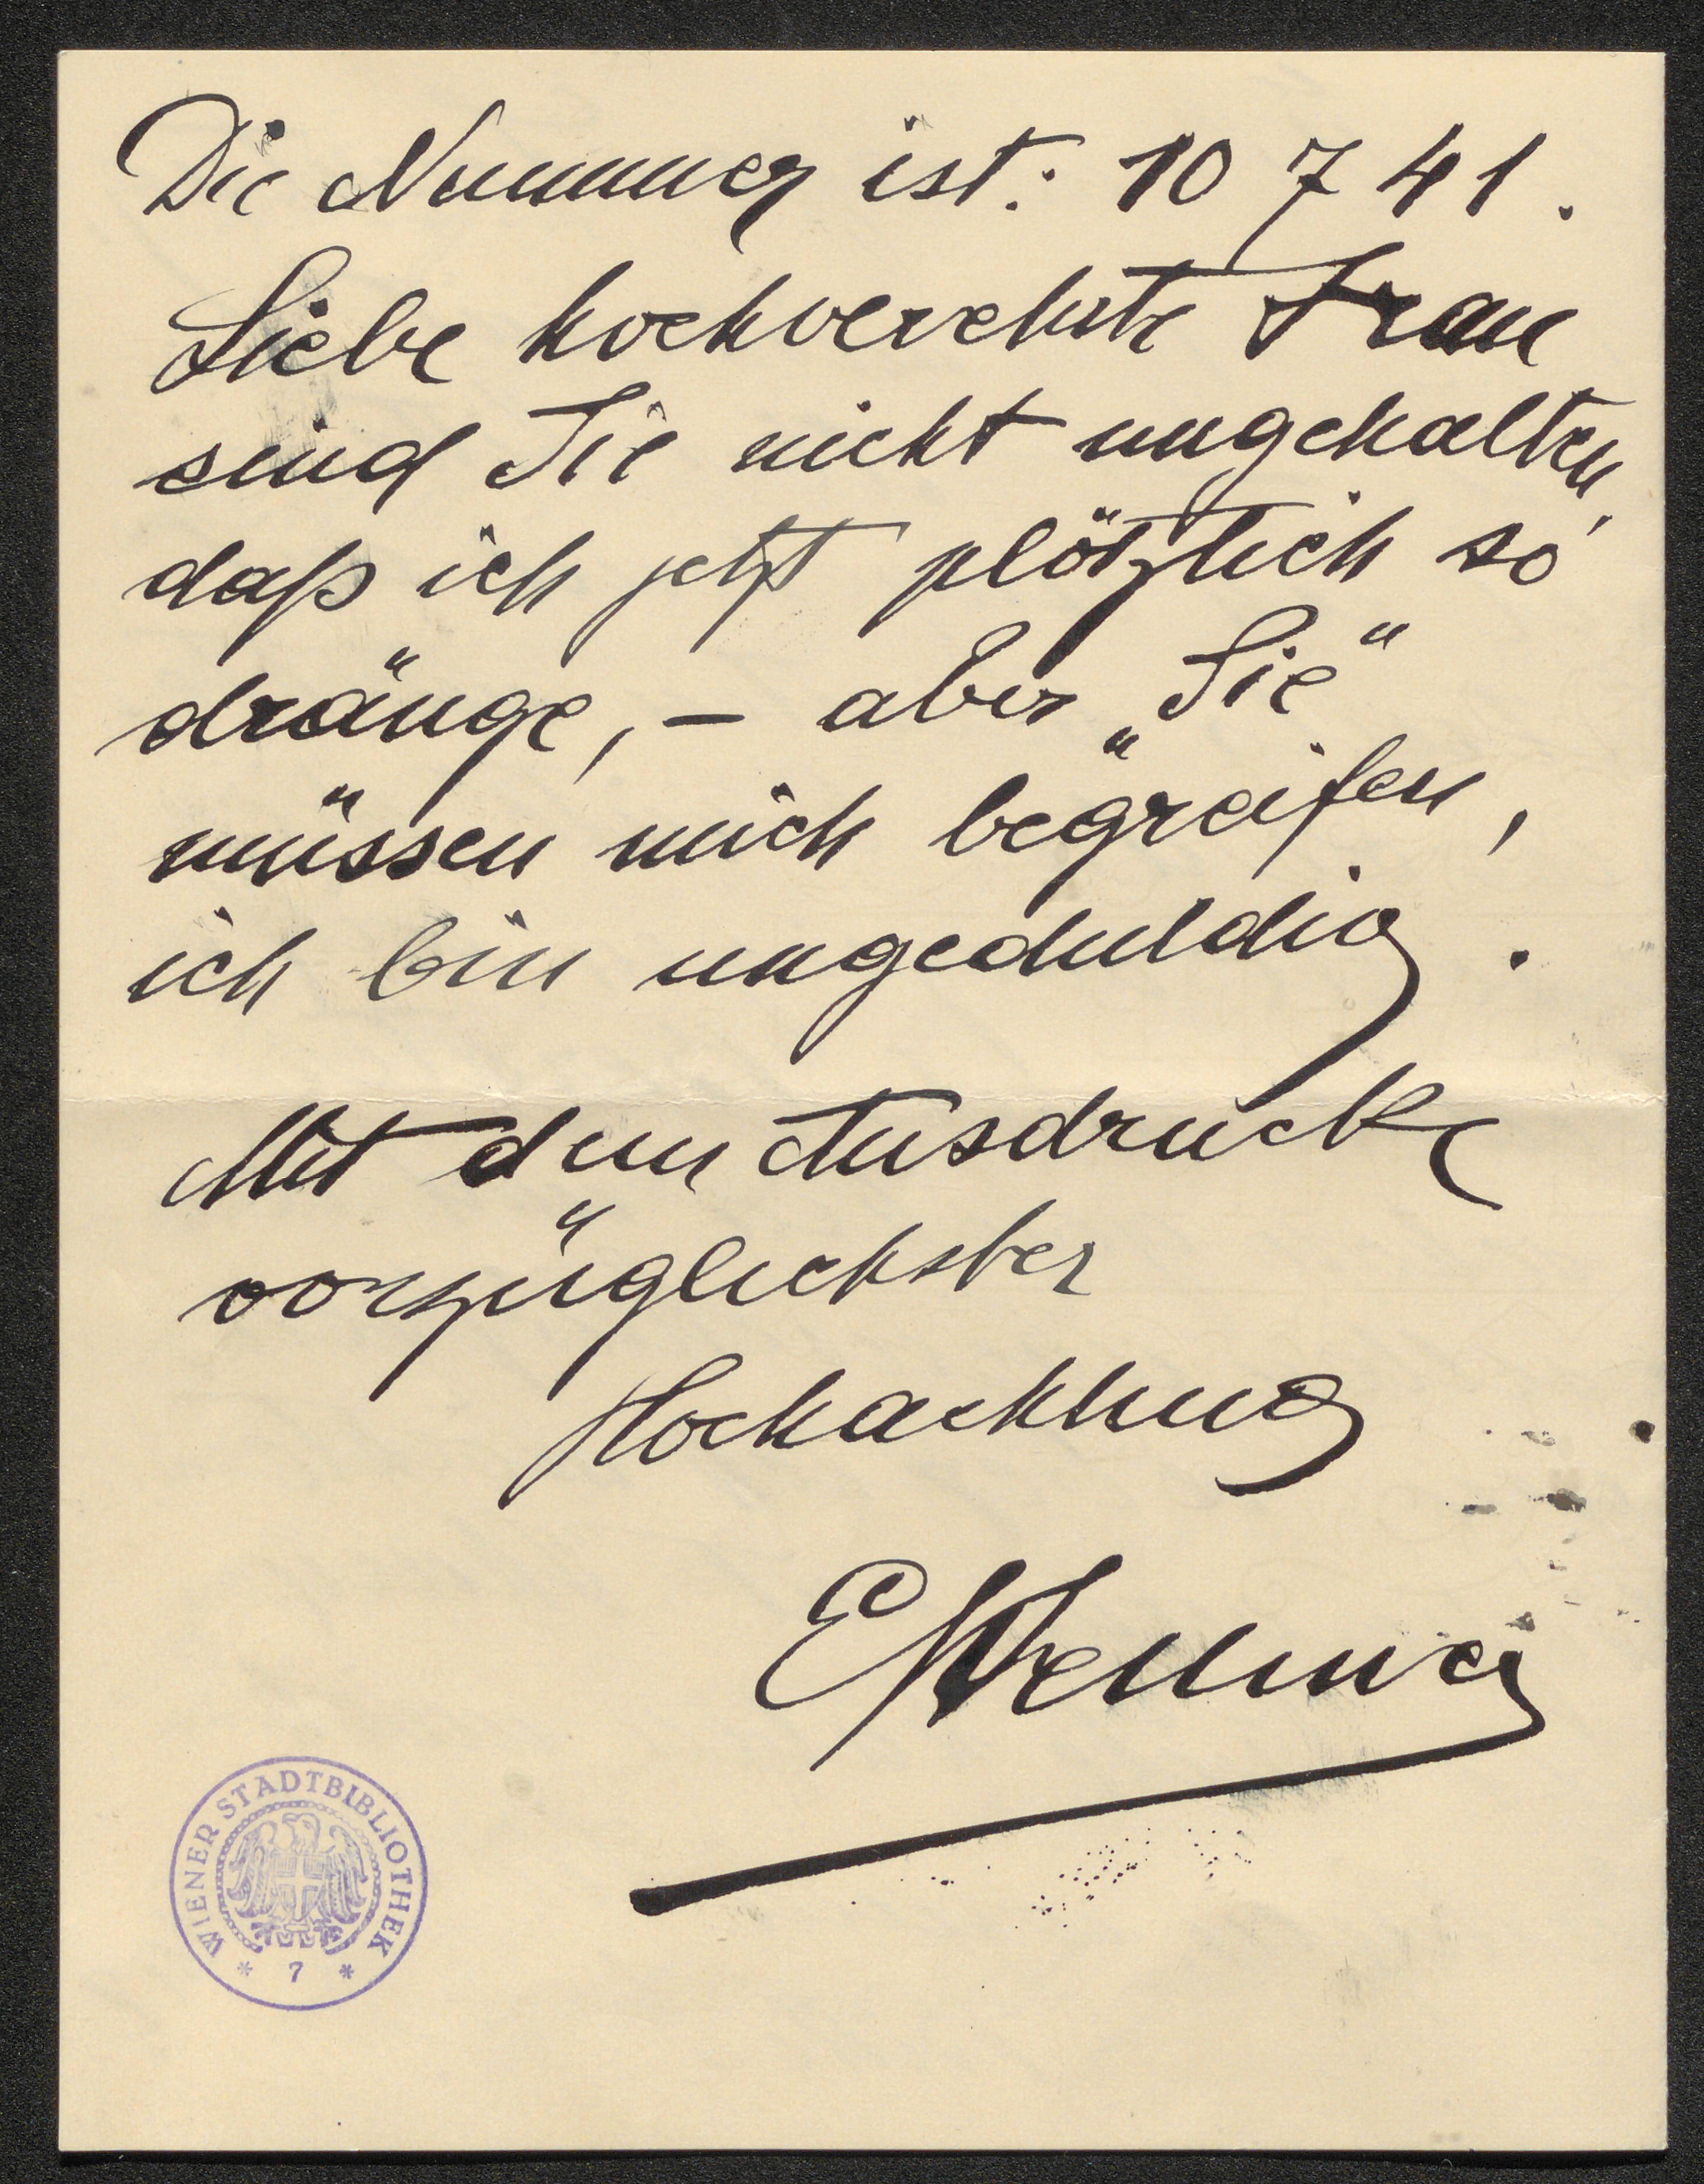 Die Nummer ist: 10 7 41.
Liebe hochverehrte Frau
sind Sie nicht ungehalten,
daß ich jetzt plötzlich so
dränge, – aber „Sie“
müssen mich begreifen,
ich bin ungeduldig.
Mit dem Ausdrucke
vorzüglichster
Hochachtung
WIENER STADTBIBLIOTHEK
* 7 *